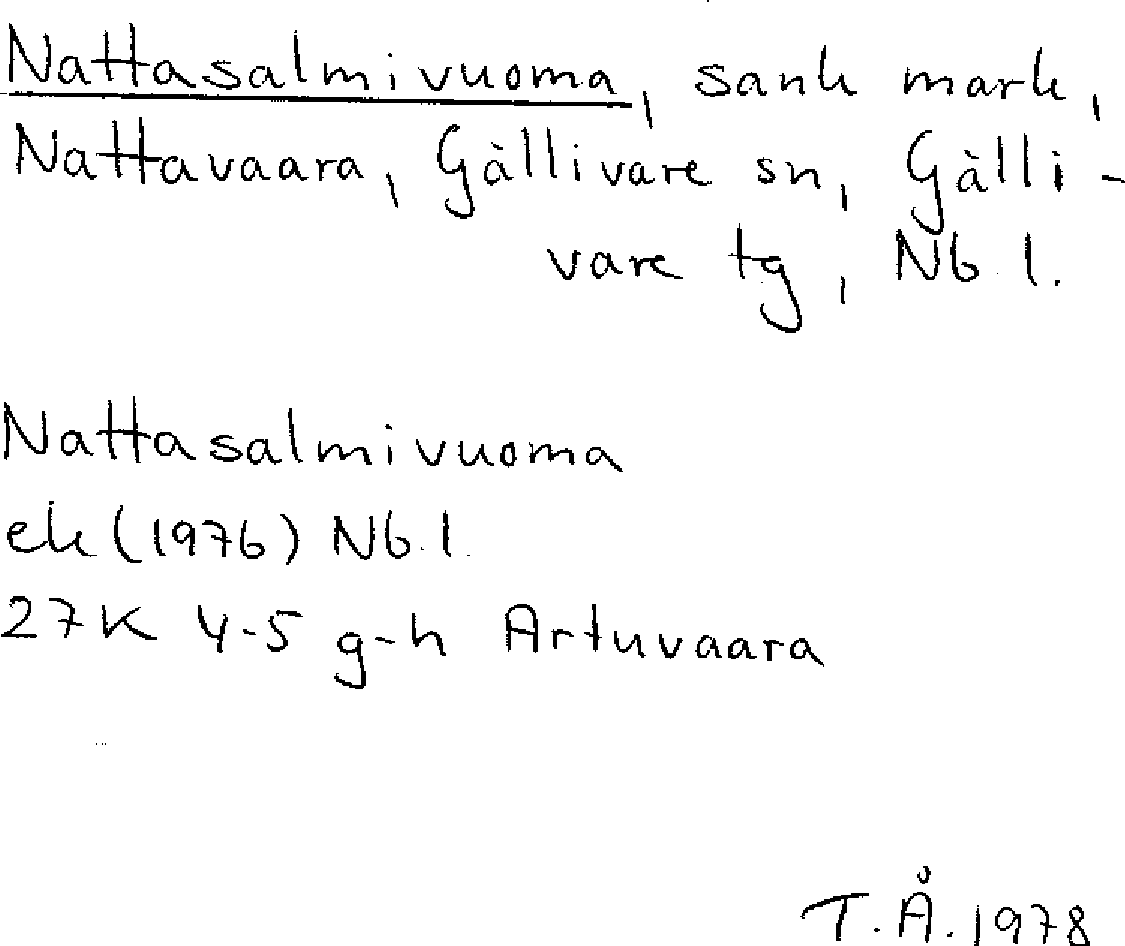 Nattasalmivuoma, sank mark,
Nattavaara, Gällivare sn, Gälli-
vare tg, Nb l.
Nattasalmivuoma
ek (1976) Nb. l.
27K 4-5 g-h Artuvaara
T.Å. 1978